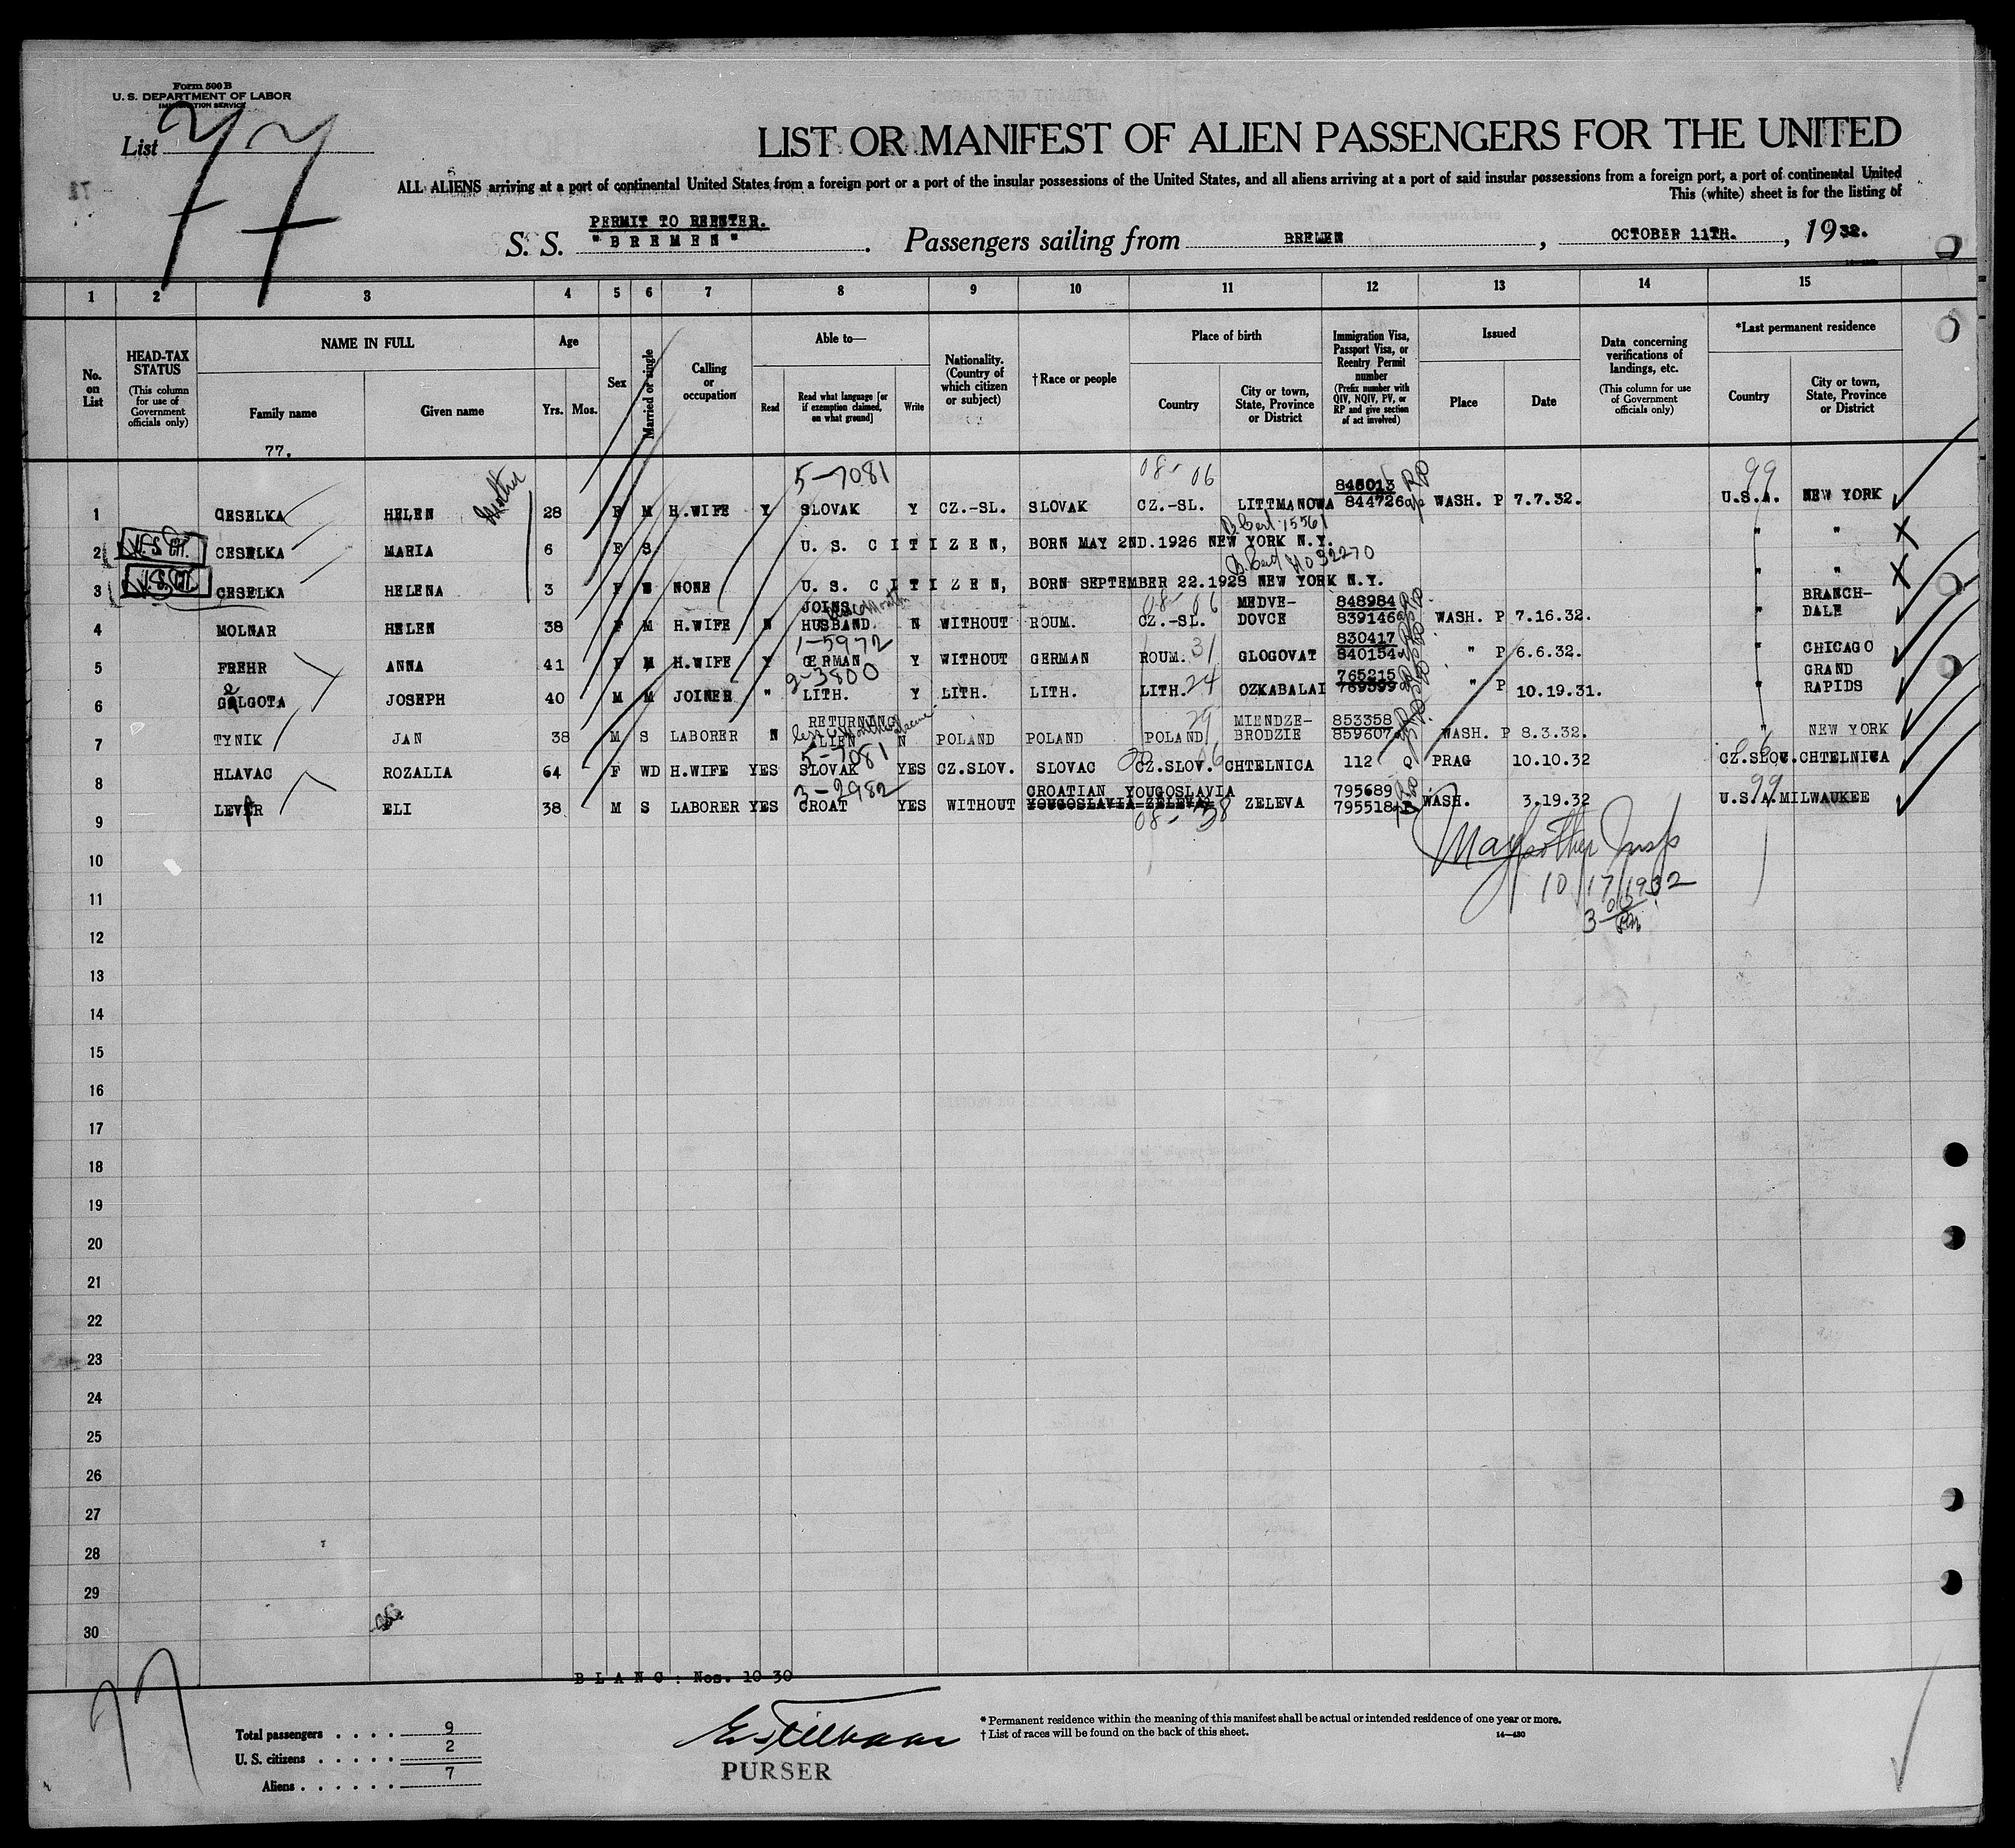 Form 500 B
U. S. DEPARTMENT OF LABOR
IMMIGRATION SERVICE
List 77
LIST OR MANIFEST OF ALIEN PASSENGERS FOR THE UNITED
ALL ALIENS arriving at a port of continental United States from a foreign port or a port of the insular possessions of the United States, and all aliens arriving at a port of said insular possessions from a foreign port, a port of continental United
This (white) sheet is for the listing of
PERMIT TO REENTER.
S. S. "BREMEN". Passengers sailing from BREMEN, OCTOBER 11TH., 1932.
1 2 3 4 5 6 7 8 9 10 11 12 13 14 15
No. on List
HEAD-TAX STATUS
(This column for use of Government officials only)
NAME IN FULL
Family name
Given name
Age
Yrs. Mos.
Sex
Married or single
Calling or occupation
Able to—
Read
Read what language [or if exemption claimed, on what ground]
Write
Nationality. (Country of which citizen or subject)
† Race or people
Place of birth
Country
City or town, State, Province or District
Immigration Visa, Passport Visa, or Reentry Permit number
(Prefix number with QIV, NQIV, PV, or RP and give section of act involved)
Issued
Place
Date
Data concerning verifications of landings, etc.
(This column for use of Government officials only)
*Last permanent residence
Country
City or town, State, Province or District
77.
5-7081 08- 06 846013 99
1 CESELKA HELEN 28 F M H.WIFE Y SLOVAK Y CZ.-SL. SLOVAK CZ.-SL. LITTMANOWA 844726 WASH. P 7.7.32. U.S.A. NEW YORK
B. Cert. 15561
2 U.S. CIT. CESELKA MARIA 6 F S U. S. CITIZEN, BORN MAY 2ND.1926 NEW YORK N.Y. " "
B. Cert
3 U.S. CIT CESELKA HELENA 3 F S NONE U. S. CITIZEN, BORN SEPTEMBER 22.1928 NEW YORK N.Y. " "
JOINS 08- 06 MEDVE- 848984 BRANCH-
4 MOLNAR HELEN 38 F M H.WIFE N HUSBAND. N WITHOUT ROUM. CZ.-SL. DOVCE 839146 WASH. P 7.16.32. " DALE
1-5972 830417
5 FREHR ANNA 41 F M H.WIFE Y GERMAN Y WITHOUT GERMAN ROUM. 31 GLOGOVAT 840154 " P 6.6.32. " CHICAGO
2-3800 765215 GRAND
6 GALGOTA JOSEPH 40 M M JOINER " LITH. Y LITH. LITH. LITH. 24 OZKABALAI 769399 " P 10.19.31. " RAPIDS
RETURNING 29 MIENDZE- 853358
7 TYNIK JAN 38 M S LABORER N ALIEN N POLAND POLAND POLAND BRODZIE 859607 WASH. P 8.3.32. " NEW YORK
5-7081
8 HLAVAC ROZALIA 64 F WD H.WIFE YES SLOVAK YES CZ.SLOV. SLOVAC CZ.SLOV. 06 CHTELNICA 112 Q PRAG 10.10.32 CZ.SLOV. CHTELNICA
3-2982 CROATIAN YOUGOSLAVIA 795689 99
9 LEVER ELI 38 M S LABORER YES CROAT YES WITHOUT YOUGOSLAVIA ZELEVA ZELEVA 795518 WASH. 3.19.32 U.S.A. MILWAUKEE
08- 38
10
10/17/1932
11
3 00 Pm
12
13
14
15
16
17
18
19
20
21
22
23
24
25
26
27
28
29
30
BLANC: Nos. 10-30
77
Total passengers . . . . . 9
U. S. citizens . . . . . 2
Aliens . . . . . . 7
PURSER
* Permanent residence within the meaning of this manifest shall be actual or intended residence of one year or more.
† List of races will be found on the back of this sheet.
14—430